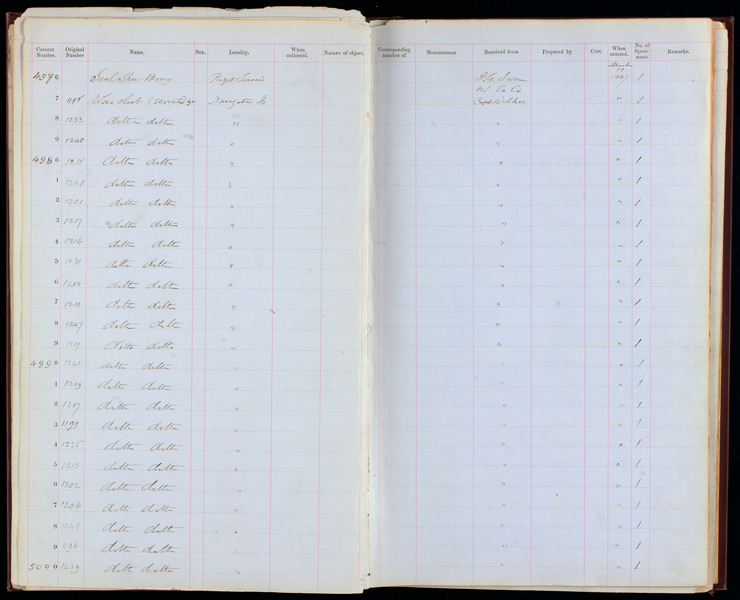 Current Number. Original Number Name. Sex. Locality. When collected. Nature of object. Corresponding number of Measurement Received from Prepared by Cost. When entered. No. of Specimens. Remarks.
March
4976 Puget Sound 1867 1
7 War Club 〃 1
8 1253 ditto ditto 〃 〃 〃 1
9 1248 ditto ditto 〃 〃 〃 1
4980 ditto ditto 〃 〃 〃 1
1 ditto ditto 〃 〃 〃 1
2 1201 ditto ditto 〃 〃 〃 1
3 1217 ditto ditto 〃 〃 〃 1
4 1216 ditto ditto 〃 〃 〃 1
5 1231 ditto ditto 〃 〃 〃 1
6 ditto ditto 〃 〃 〃 1
7 1210 ditto ditto 〃 〃 〃 1
8 1247 ditto ditto 〃 〃 〃 1
9 ditto ditto 〃 〃 〃 1
4990 1241 ditto ditto 〃 〃 〃 1
1 1209 ditto ditto 〃 〃 〃 1
2 1207 ditto ditto 〃 〃 〃 1
3 1195 ditto ditto 〃 〃 〃 1
4 1235 ditto ditto 〃 〃 〃 1
5 1213 ditto ditto 〃 〃 〃 1
6 1202 ditto ditto 〃 〃 〃 1
7 1206 ditto ditto 〃 〃 〃 1
8 1246 ditto ditto 〃 〃 〃 1
9 1196 ditto ditto 〃 〃 〃 1
5000 1239 ditto ditto 〃 〃 〃 1